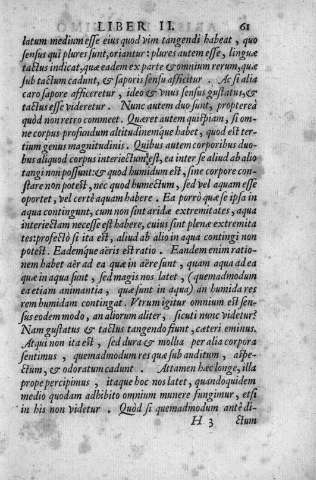 LIBER II. 61
latum medium esse eius quod vim tangendi habeat, quo
sensus qui plures sunt, oriantur: plures autem esse, linguæ
tactus indicat, quæ eadem ex parte & omnium rerum, quæ
sub tactum cadunt, & saporis sensu afficitur. Ac si alia
caro sapore afficeretur, ideo & vnus sensus gustatus, &
tactus esse videretur. Nunc autem duo sunt, proptereà
quòd non retro commeet. Quæret autem quispiam, si om-
ne corpus profundum altitudinemque habet, quod est ter-
tium genus magnitudinis. Quibus autem corporibus duo-
bus aliquod corpus interiectum est, ea inter se aliud ab alio
tangi non possunt: & quod humidum est, sine corpore con-
stare non potest, nec quod humectum, sed vel aquam esse
oportet, vel certè aquam habere. Ea porrò quæ se ipsa in
aqua contingunt, cum non sint aridæ extremitates, aqua
interiectam necesse est habere, cuius sunt plenæ extremita
tes: profectò si ita est, aliud ab alio in aqua contingi non
potest. Eademque aëris est ratio. Eandem enim ratio-
nem habet aër ad ea quæ in aëre sunt, quam aqua ad ea
quæ in aqua sunt, sed magis nos latet, (quemadmodum
ea etiam animantia, quæ sunt in aqua) an humida res
rem humidam contingat. Vtrum igitur omnium est sen-
sus eodem modo, an aliorum aliter, sicuti nunc videtur?
Nam gustatus & tactus tangendo fiunt, cæteri eminus.
Atqui non ita est, sed dura & mollia per alia corpora
sentimus, quemadmodum res quæ sub auditum, aspe-
ctum, & odoratum cadunt. Attamen hæc longe, illa
prope percipimus, itaque hoc nos latet, quandoquidem
medio quodam adhibito omnium munere fungimur, etsi
in his non videtur. Quòd si quemadmodum antè di-
H 3 ctum